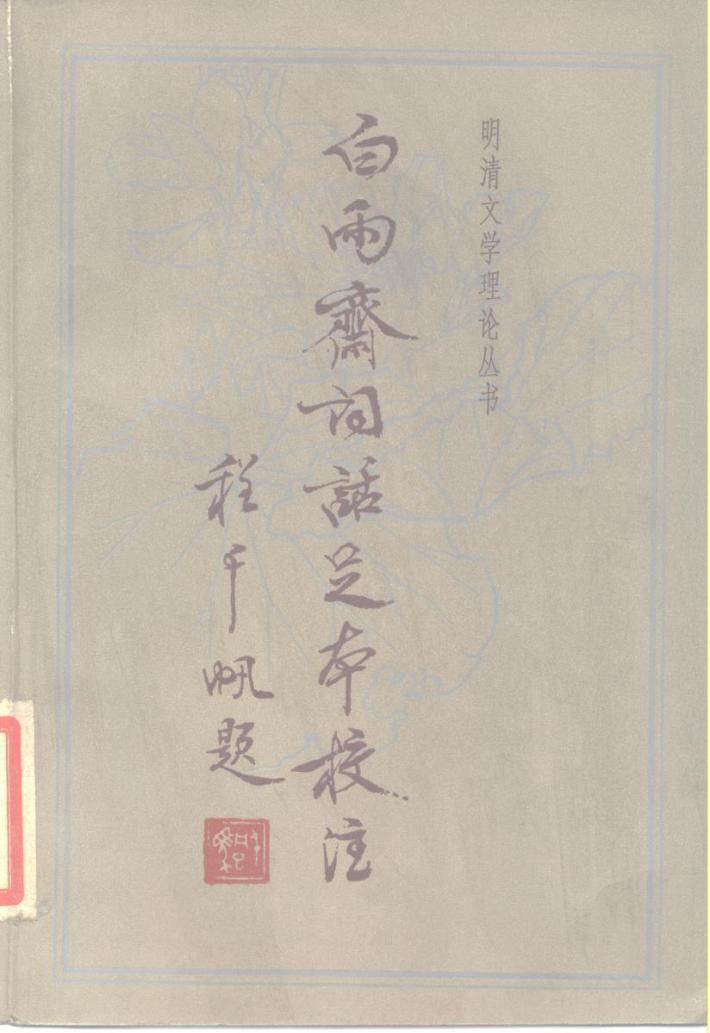 明清文学理论丛书
白雨齋词話足本校注
程千帆题